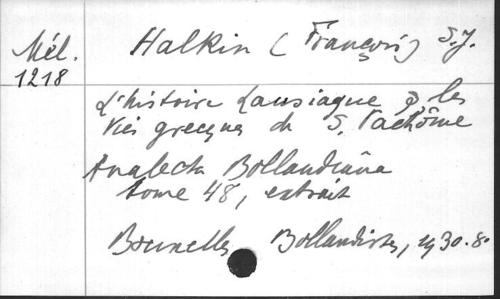 Mél.
1218
Halkin (François) S.J.
L'histoire Lausiaque & les
Vies grecques de S. Pachôme
Analecta Bollandiana
tome 48, extrait
Bruxelles Bollandistes, 1930. 8°